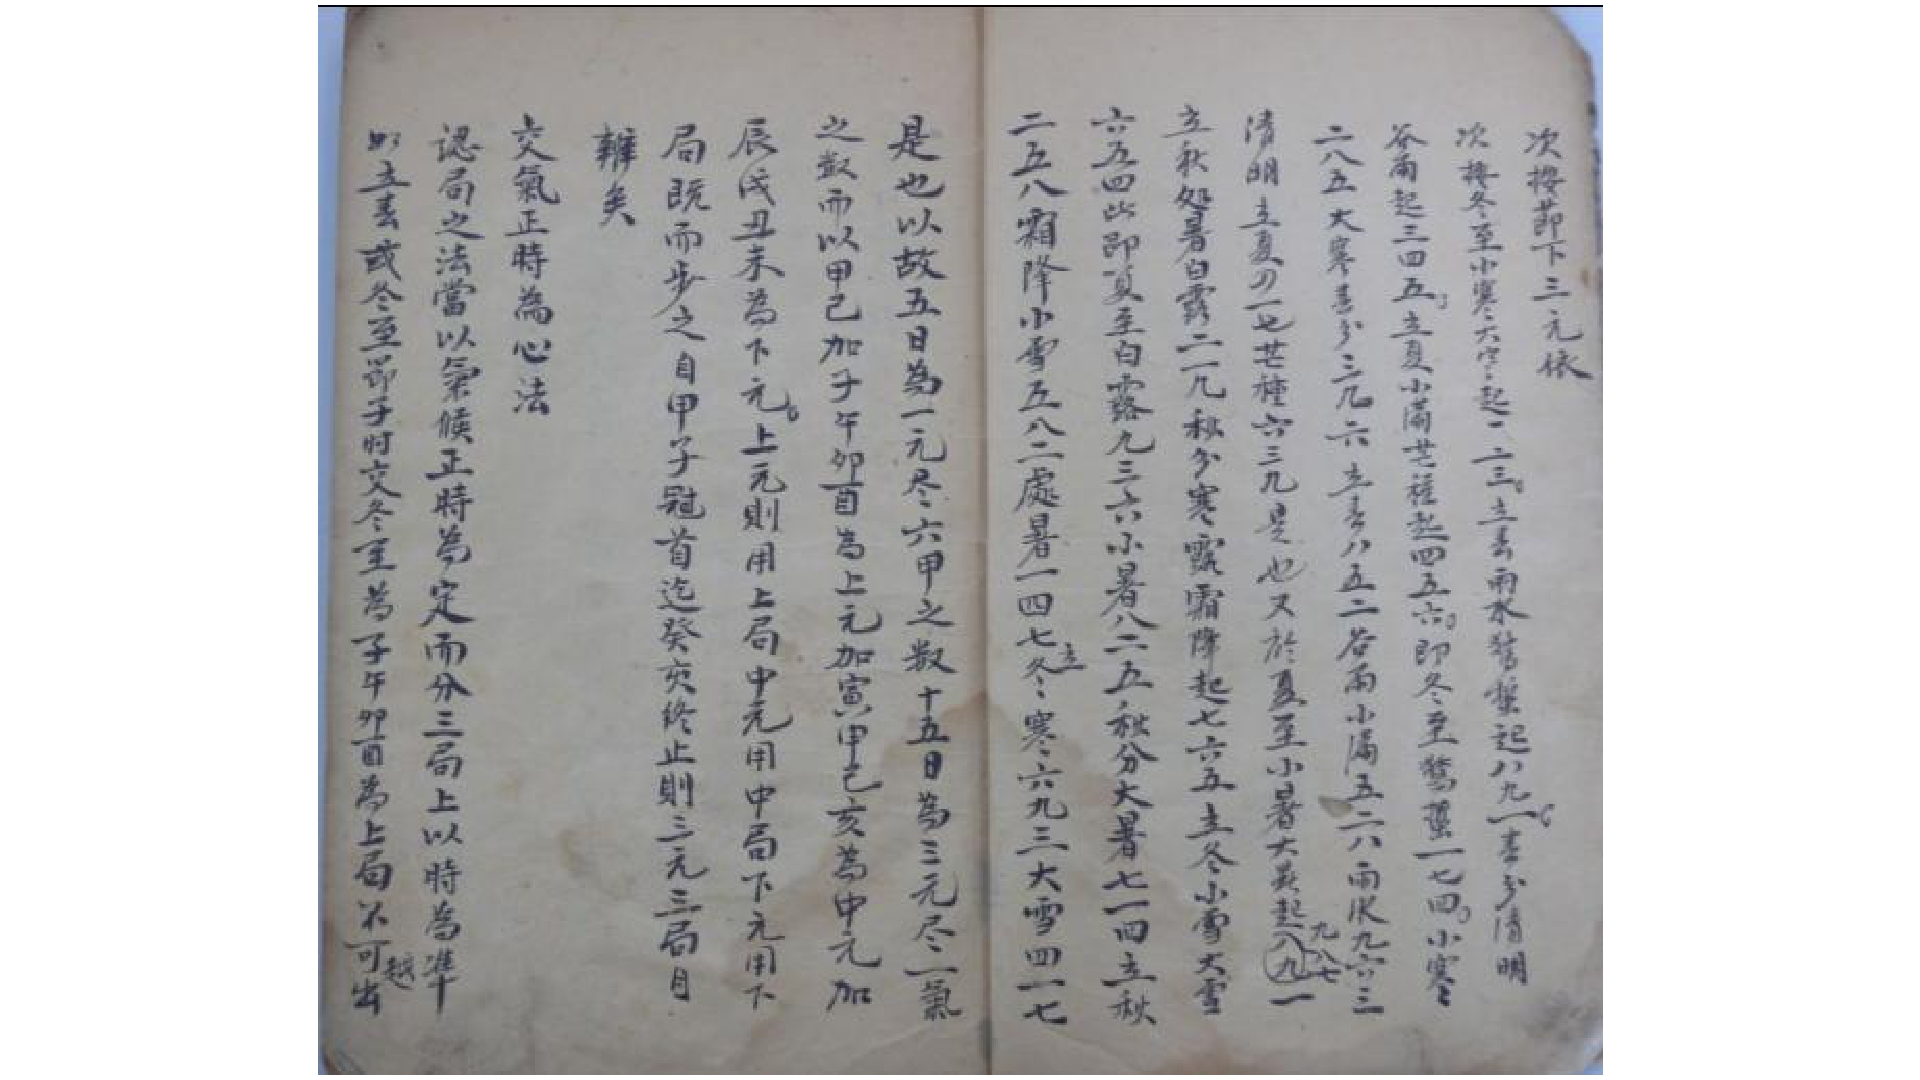 次按節下三元依
次接冬至小寒大寒起一二三立春雨水驚蟄起八九一春分清明
谷雨起三四五立夏小滿芒種起四五六即冬至驚蟄一七四小寒
二八五大寒春分三九六立春八五二谷雨小滿五二八雨水九六三
清明立夏四一七芒種六三九是也又於夏至小暑大暑起八九一九八七
立秋処暑白露二一九秋分寒露霜降起七六五立冬小雪大雪
六五四此即夏至白露九三六小暑八二五秋分大暑七一四立秋
二五八霜降小雪五八二處暑一四七立冬寒六九三大雪四一七
是也以故五日為一元尽六甲之数十五日為三元尽一氣
之数而以甲己加子午卯酉為上元加寅甲己亥為中元加
辰戌丑未為下元上元則用上局中元用中局下元用下
局既而步之自甲子冠首迄癸亥終止則三元三局自
辨矣
交氣正時為心法
認局之法當以氣候正時為定而分三局上以時為準
如立春或冬至節子时交冬至為子午卯酉為上局不可越出